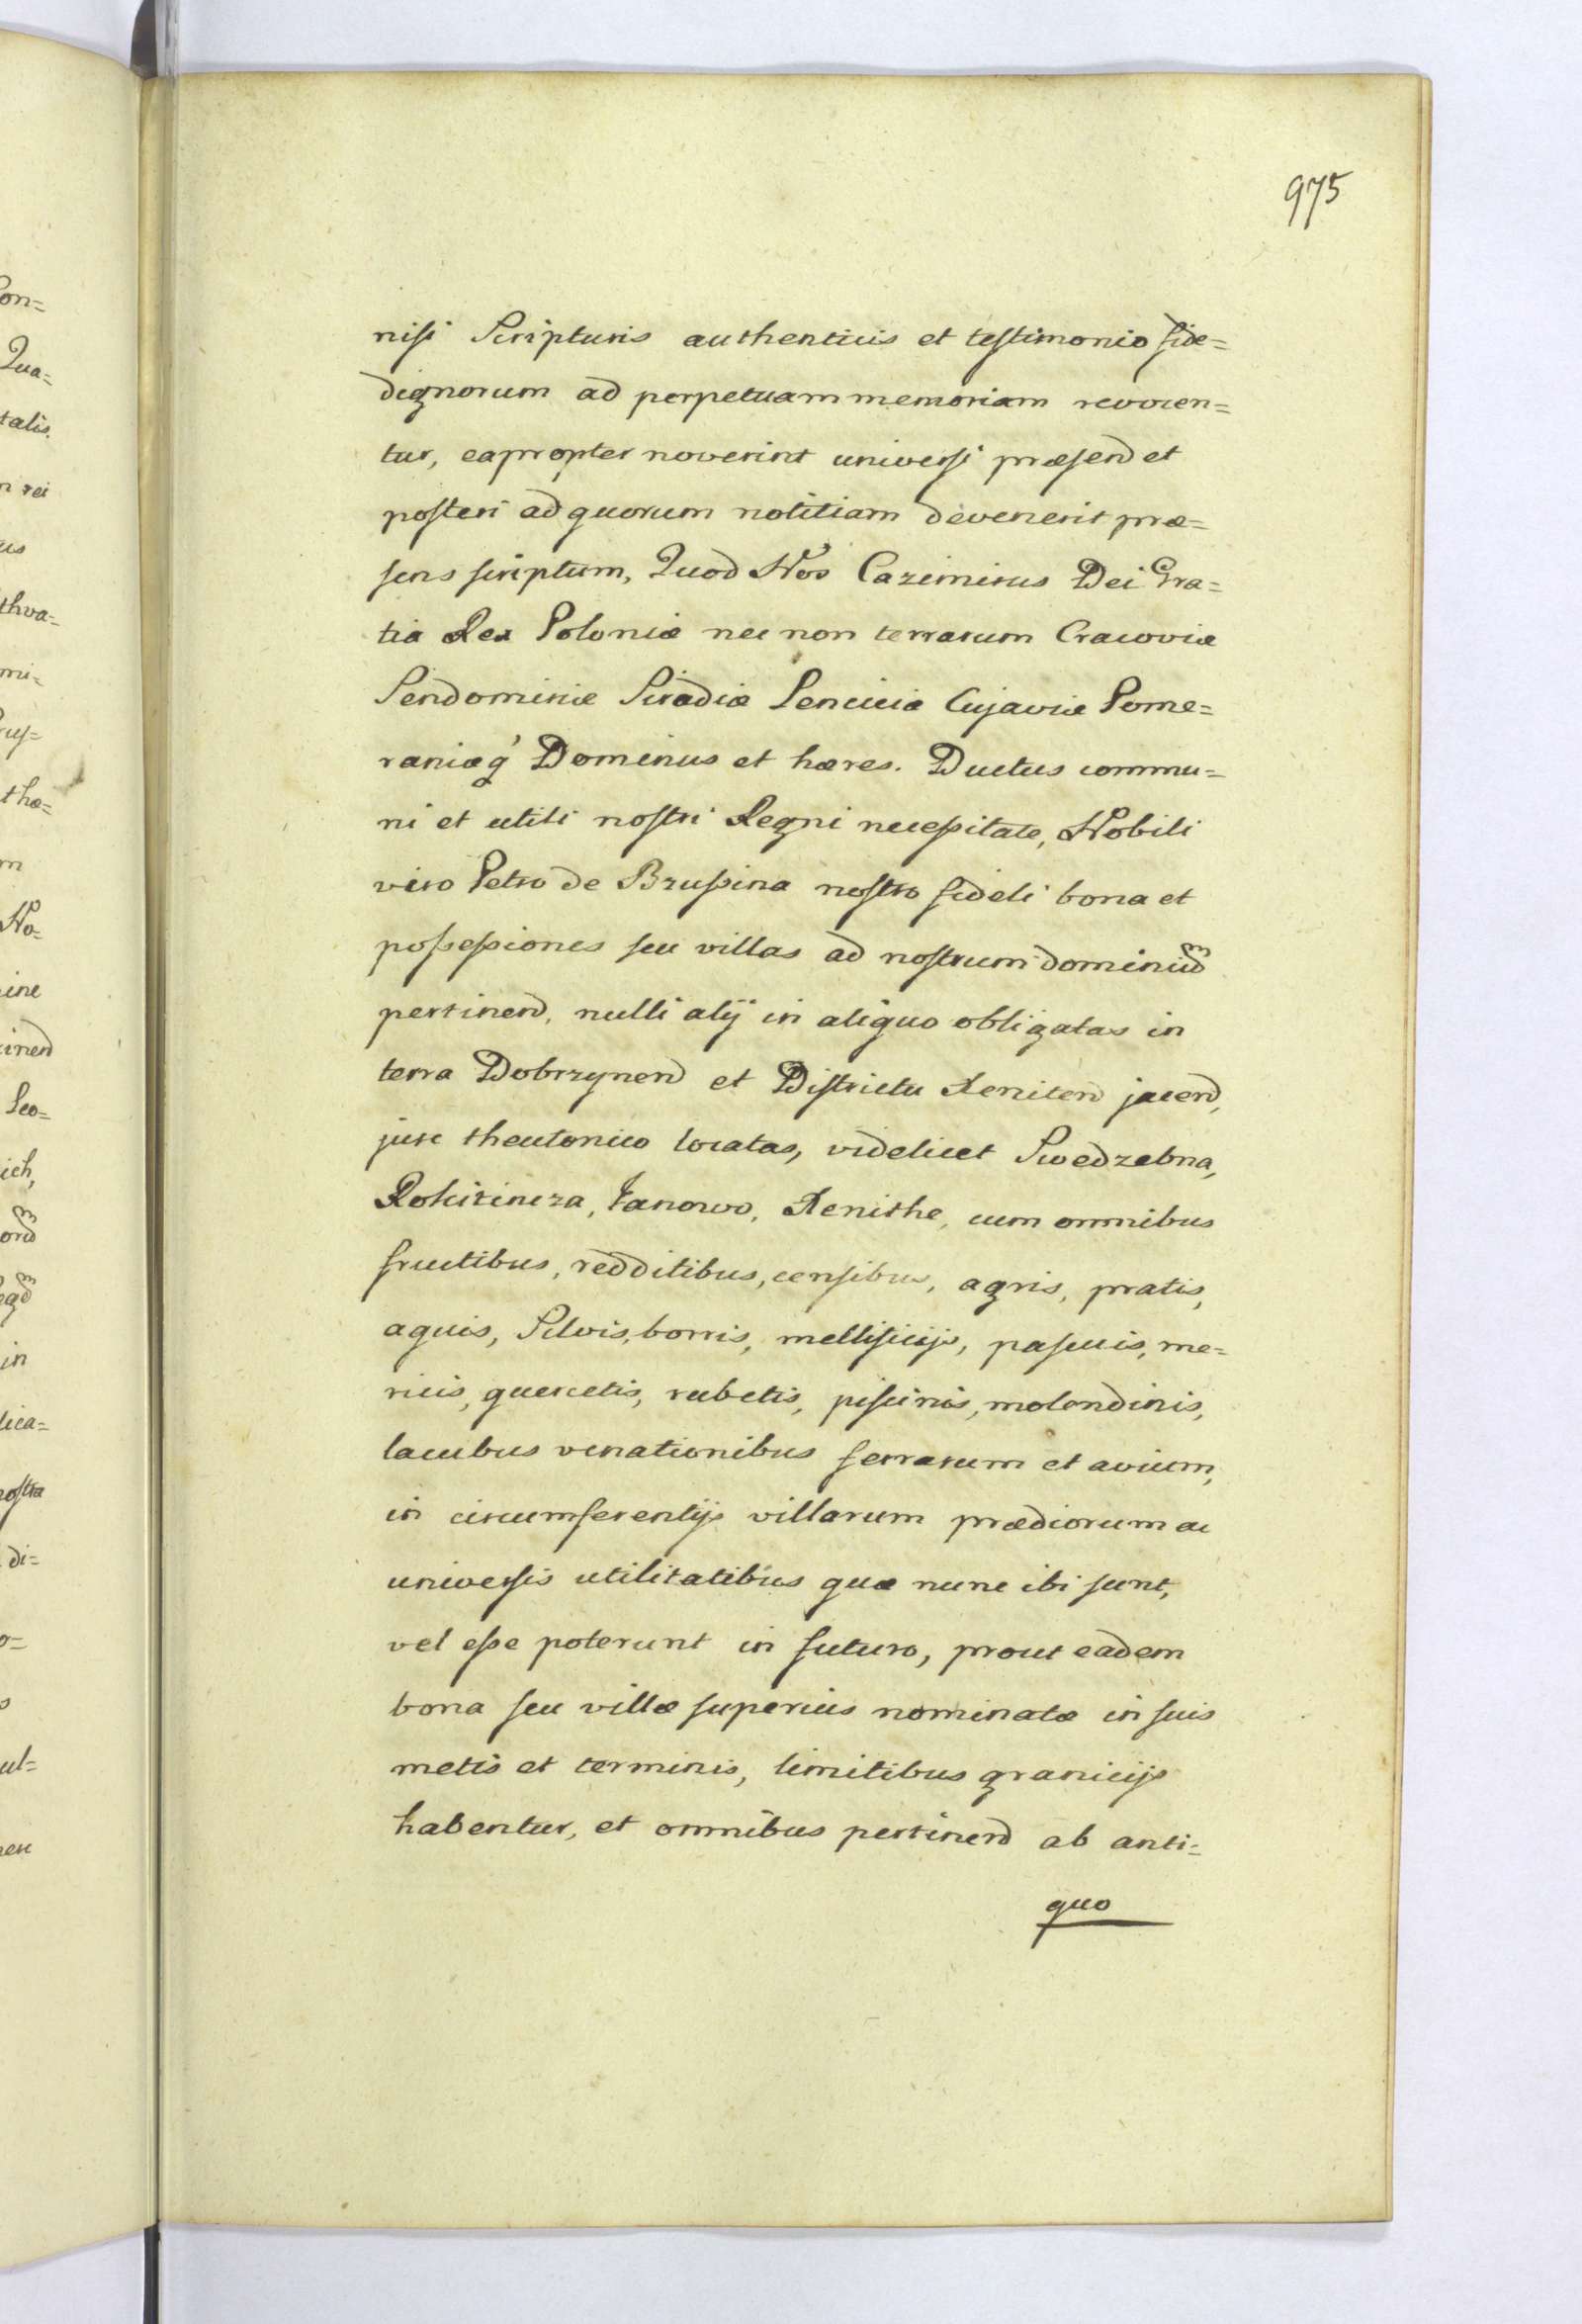 975
nisi Scripturis authenticis et testimonio fide=
dignorum ad perpetuam memoriam revocen=
tur, eapropter noverint universi præsend et
posteri ad quorum notitiam devenerit præ=
sens scriptum, Quod Nos Cazimirus Dei Gra=
tia Rex Poloniæ nec non terrarum Cracoviæ
Sendomiriæ Siradiæ Lenciciæ Cujaviæ Pome=
raniæq́ Dominus et hæres. Ductus commu=
ni et utili nostri Regni necessitate, Nobili
viro Petro de Brussina nostro fideli bona et
possessiones seu villas ad nostrum dominiū
pertinend, nulli alij in aliquo obligatas in
terra Dobrzynend et Districtu Reniten jacend,
jure theutonico locatas, videlicet Swedzebna,
Rokitincza, Janowo, Renithe, cum omnibus
fructibus, redditibus, censibus, agris, pratis,
aquis, Silvis, borris, mellificijs, pascuis, me=
ricis, quercetis, rubetis, piscinis, molendinis,
lacubus venationibus ferrarum et avium,
in circumferentijs villarum prædiorum ac
universis utilitatibus quæ nunc ibi sunt,
vel esse poterunt in futuro, prout eadem
bona seu villæ superius nominatæ in suis
metis et terminis, limitibus granicijs
habentur, et omnibus pertinend ab anti=
quo
on=
Qua=
talis.
n rei
us
thva=
mi=
tha=
m
No=
ine
inend
Leo=
ich,
in
lica=
nostra
di=
o=
ul=